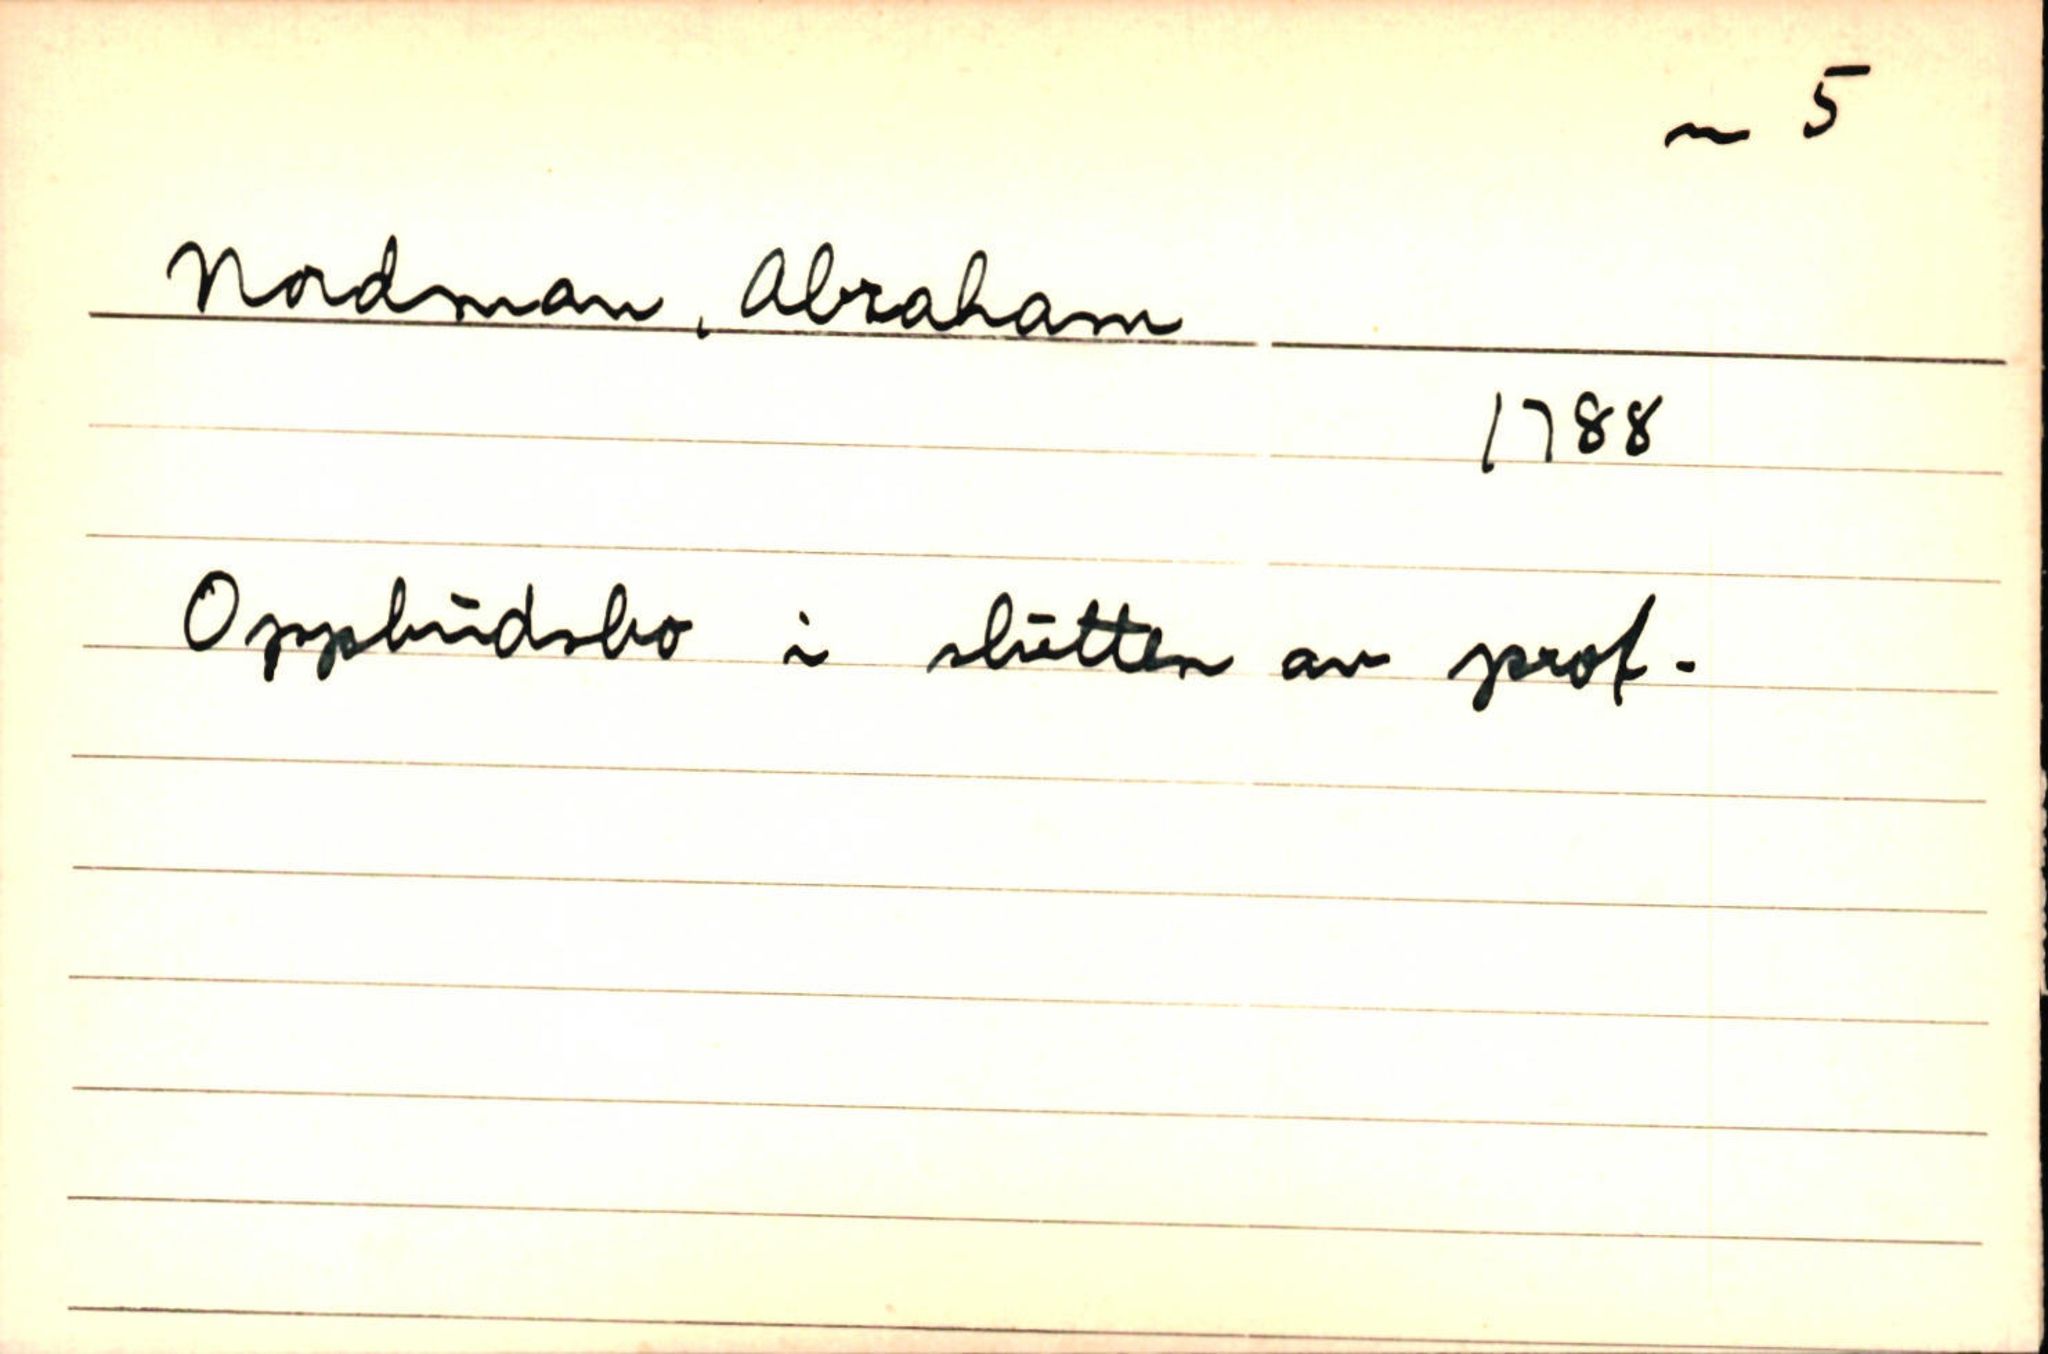 ~ 5
Nordman, Abraham
1788
Oppbudsbo i slutten av prot.